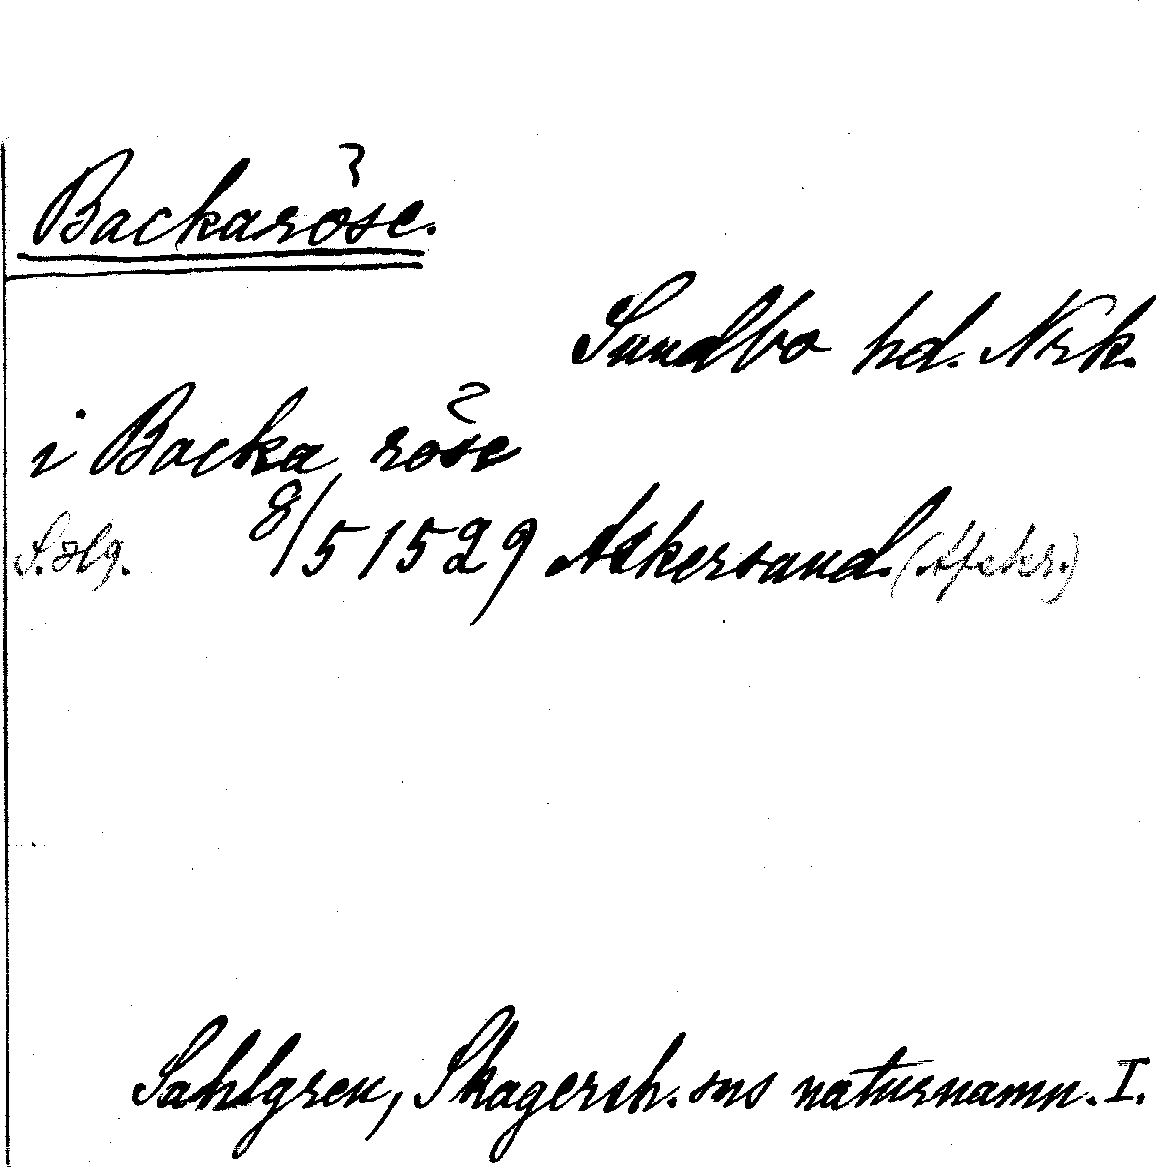 Backaröse.
Sundbo hd. Nrk.
i Backa röse
8/5 1529 Askersund. (Afskr.)
Sahlgren, Skagersh. sns naturnamn. I.